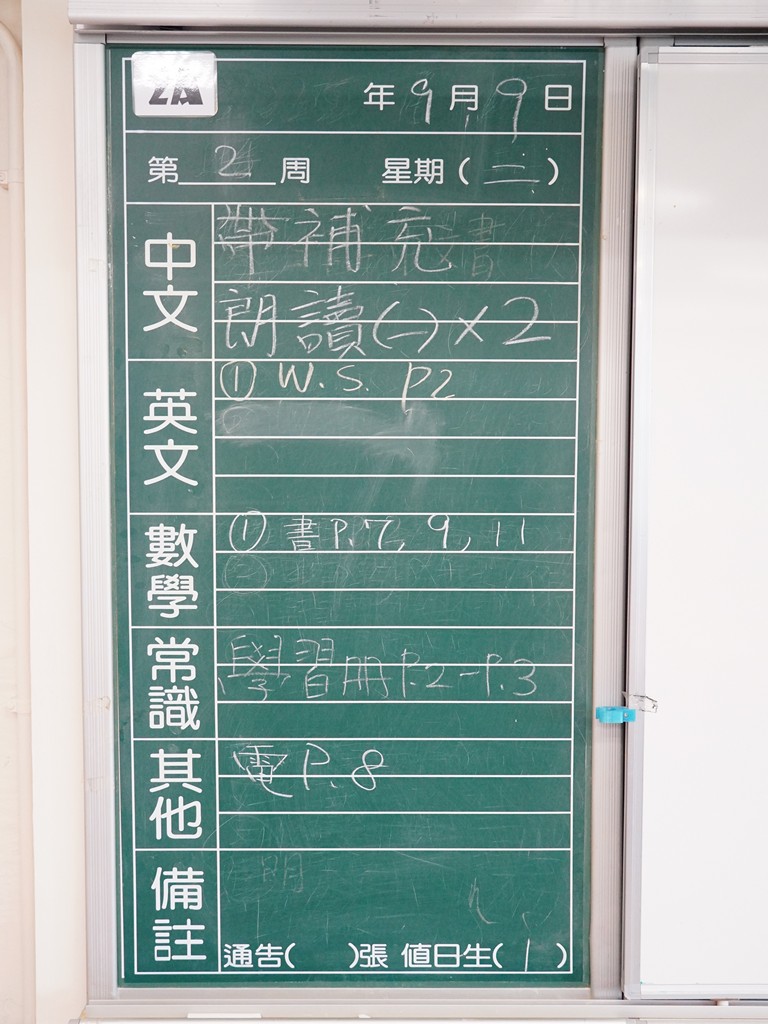 2A
年9月9日
第2周 星期(二)
中文
帶補充
朗讀(一)×2
英文
① W.S. p2
數學
① 書P.7, 9, 11
常識
學習册P.2-P.3
其他
電P.8
備註
通告( )張 值日生(1)